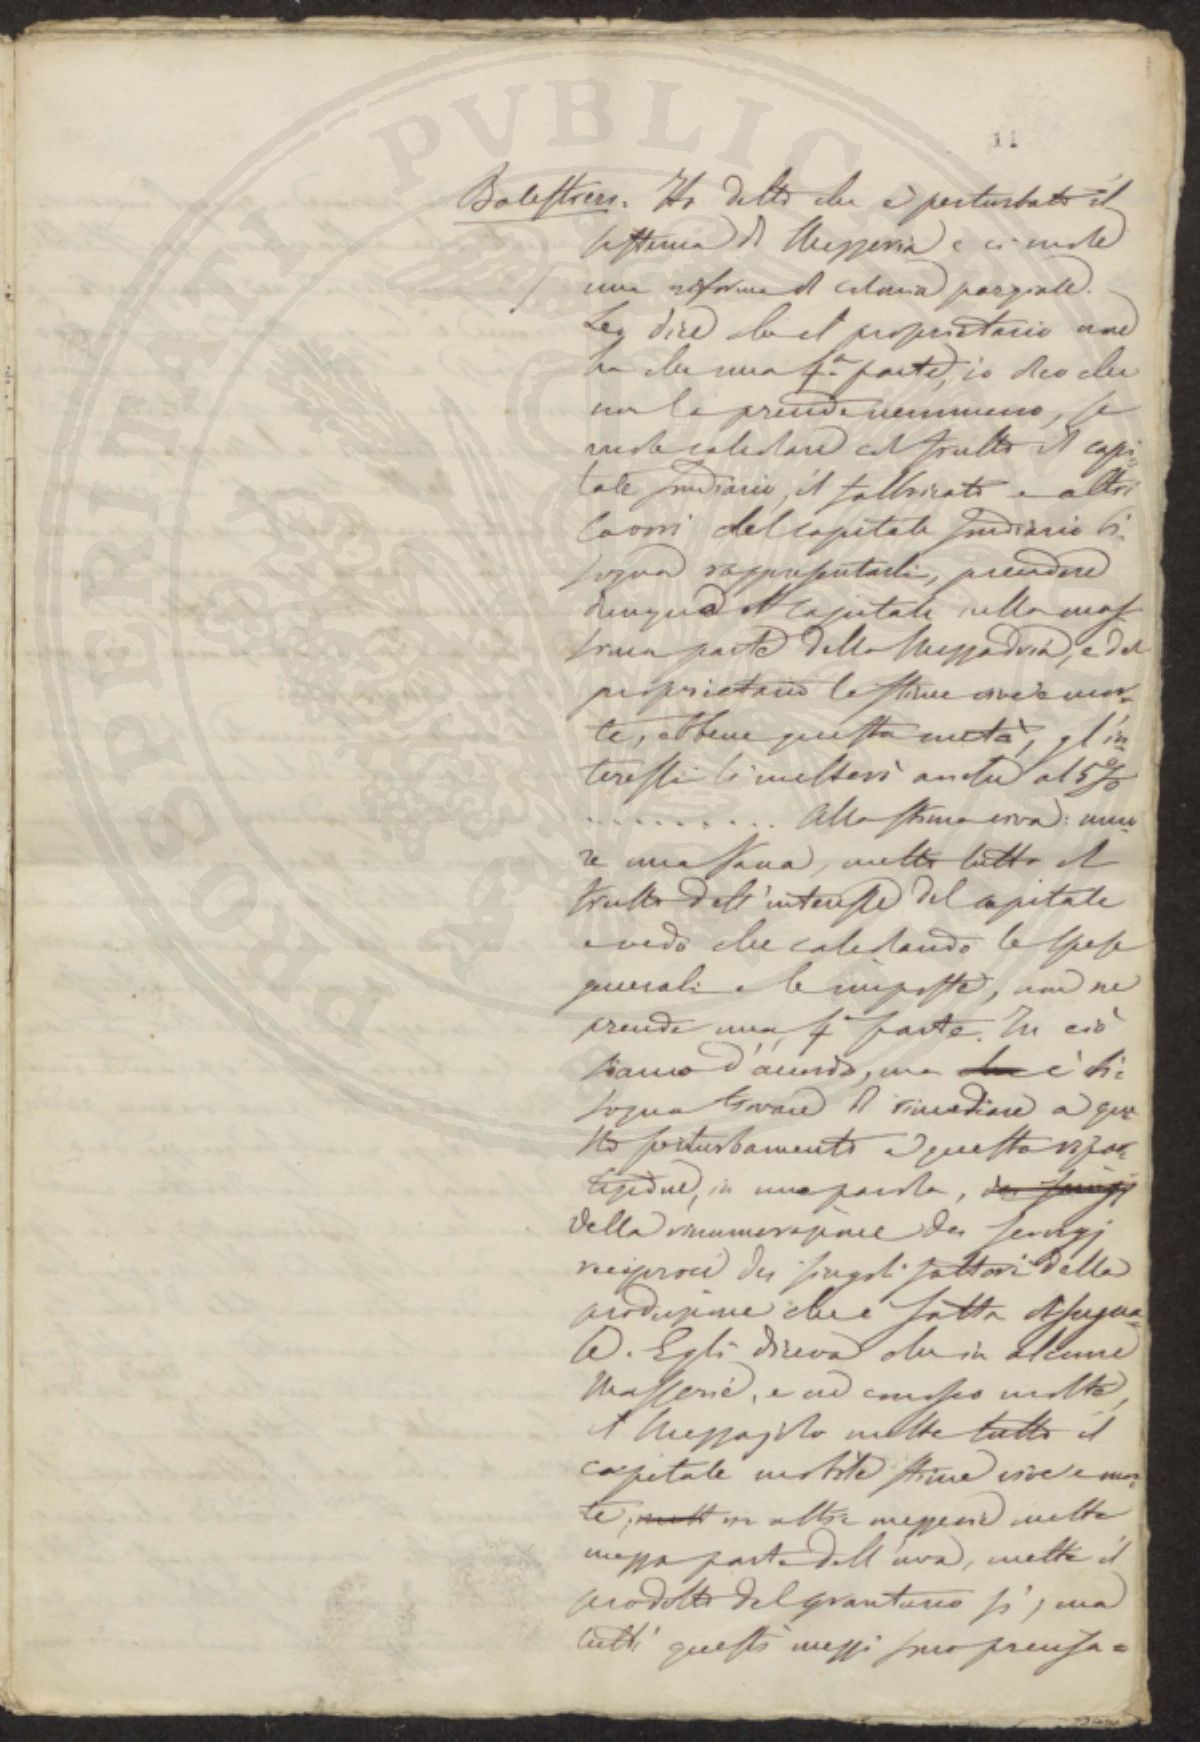 11
Balestreri. Ho detto che è perturbato il
sistema di Mezzeria e ci vuole
una riforma di colonia parziale.
Leg dice che il proprietario non
ha che una 4.a parte, io dico che
non la prende nemmeno, se
vuole calcolare col frutto il capi-
tale fondiario, il fabbricato e altri
lavori del capitale fondiario bi-
sogna rappresentarli, prendere
dunque il capitale nella mas
sima parte della Mezzadria, e del
proprietario le stime vive e mor-
te, ebbene questa metà, gl'in-
teressi li metterò anche al 5%
. . . . . . . . . . Alla stima viva:
una, metto tutto il
frutto dell'interesse del capitale
e vedo che calcolando le spese
generali e le imposte, non ne
prende una 4a parte. In ciò
siamo d'accordo, ma che è bi-
sogna trovare di rimediare a que-
sto perturbamento a questa ripar-
tizione, in una parola, dei servizj
della rinumerazione dei servizj
reciproci dei singoli fattori della
produzione che è fatta disugua-
le. Egli diceva che in alcune
Masserie, e ne conosco molte,
il Mezzajolo mette tutto il
capitale mobile stime vive e mor-
te, mett in altre mezzerie mette
mezza parte dell'uva, mette il
prodotto del granturco sì, ma
tutti questi mezzi sono pensa-
PROSPERITATI PVBLICAE